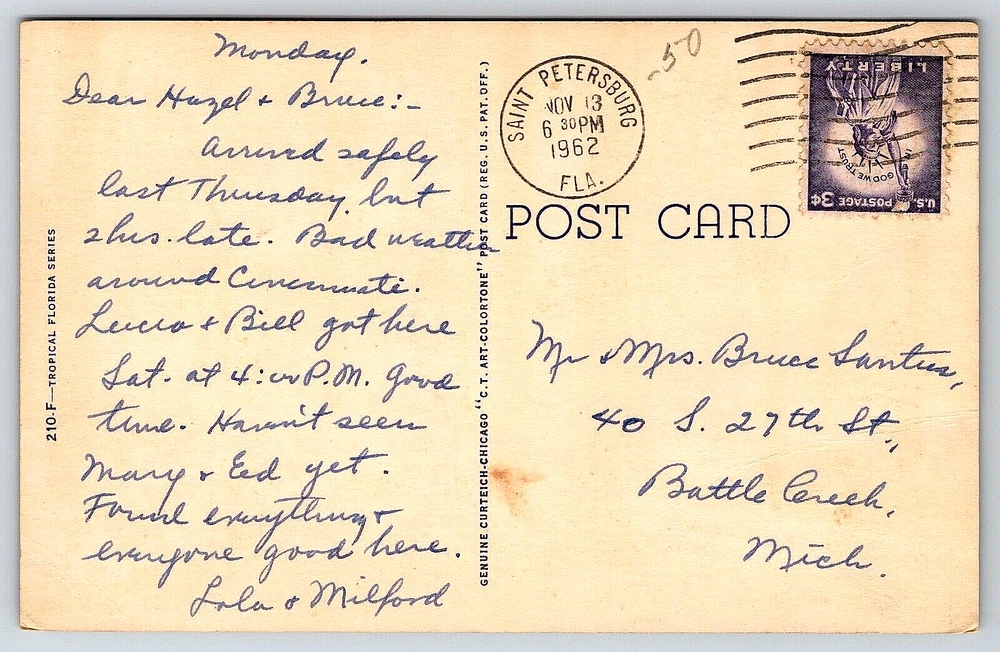 Monday.
Dear Hazel + Bruce:-
Arrived safely
last Thursday, but
2 hrs. late. Bad weather
around Cincinnati.
+ Bill got here
Sat. at 4:00 P.M. Good
time. Haven't seen
Mary + Ed yet.
Found everything +
everyone good here.
Lola & Milford
210-F—TROPICAL FLORIDA SERIES
GENUINE CURTEICH-CHICAGO "C.T. ART-COLORTONE" POST CARD (REG. U.S. PAT. OFF.)
SAINT PETERSBURG
NOV 13
6 30 PM
1962
FLA.
.50
LIBERTY
IN GOD WE TRUST
U.S. POSTAGE 3¢
POST CARD
Mr & Mrs. Bruce
40 S. 27th St.,
Battle Creek,
Mich.